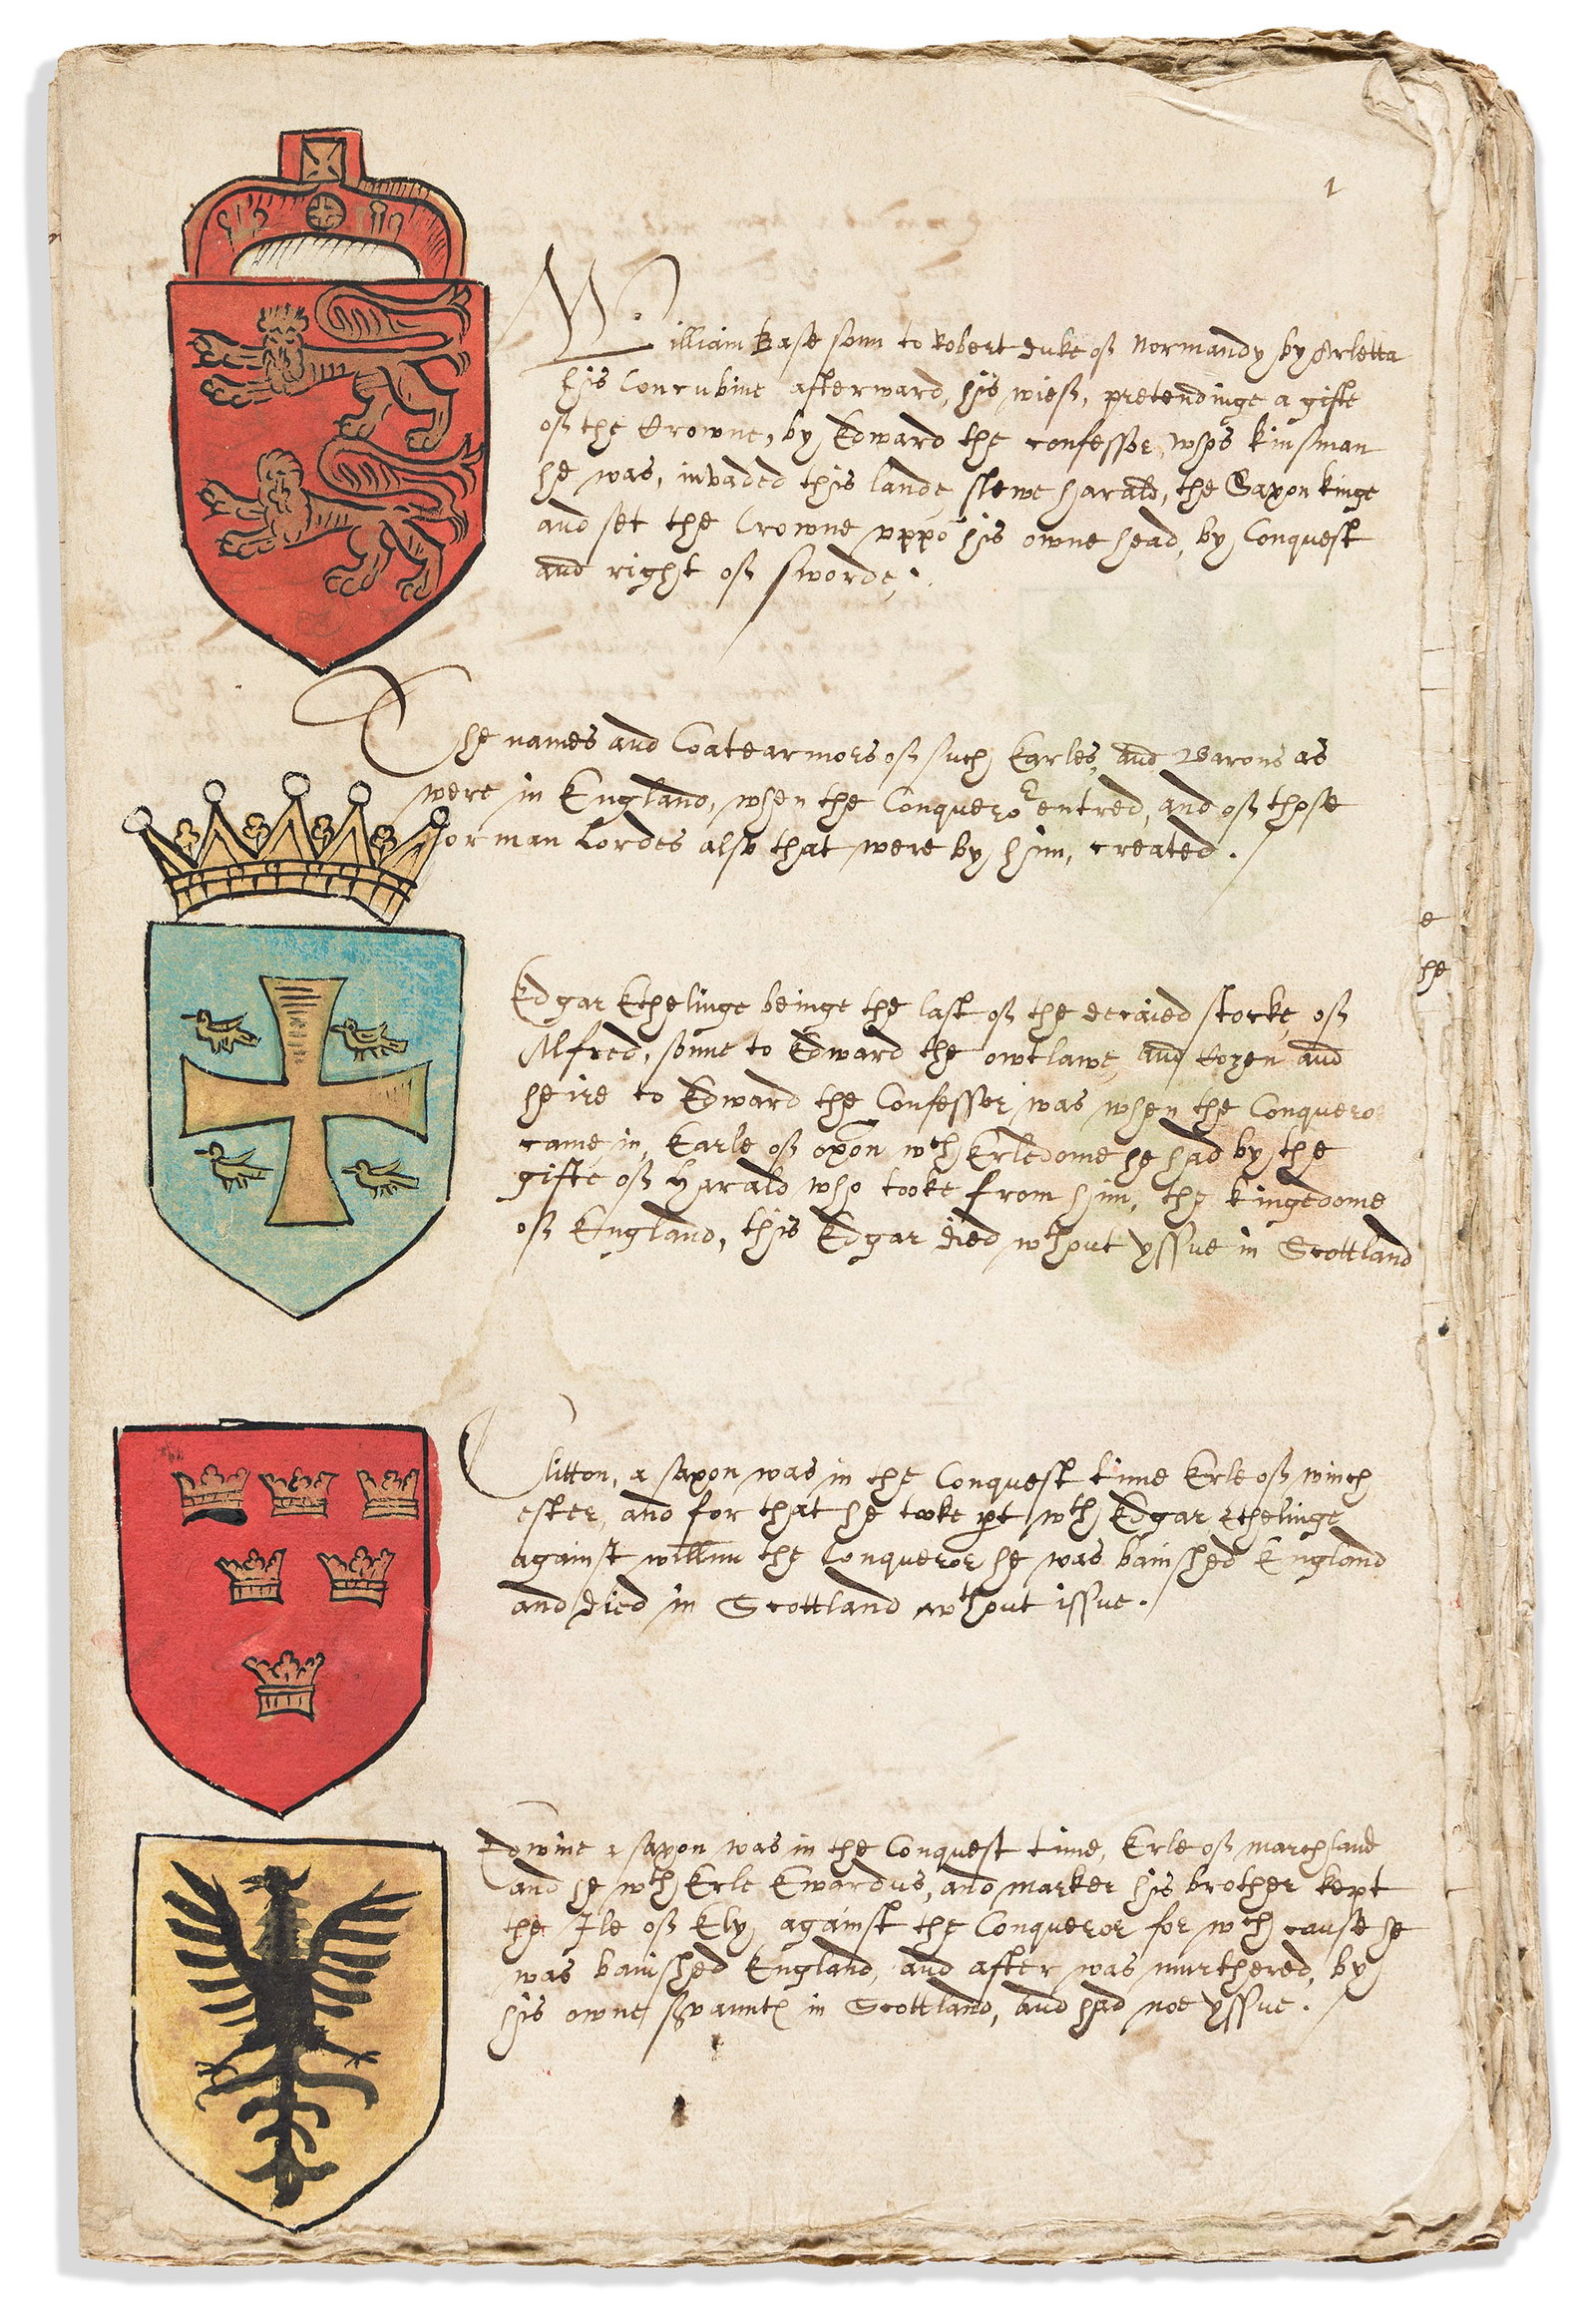 1
William Base sonn to Robert duke of Normandy by Arletta
his Concubine afterward, his wief, pretendinge a gifte
of the Crowne, by Edward the confessor whos kinsman
he was, invaded this lande, slewe harald, the Saxon kinge
and set the Crowne uppō his owne head, by Conquest
and right of sworde,
The names and Coatearmors of such Earles, and Barons as
were in England, when the Conqueror entred, and of those
Norman Lordes also that were by him, created.
Edgar Ethelinge beinge the last of the decaied stocke of
Alfred, sonne to Edward the owtlawe, and Cozen and
heire to Edward the Confessor was when the Conqueror
came in, Earle of oxōn wch Erledome he had by the
gifte of Harald who tooke from him, the kingedome
of England, this Edgar died wthout yssue in Scottland
Clitton, a saxon was in the Conquest time Erle of winch
ester, and for that he tooke pt wth Edgar Ethelinge
against willm the Conqueror he was banished England
and died in Scottland wthout issue.
Edwine a saxon was in the Conquest time, Erle of marchland
and he wth Erle Ewardus, and marker his brother kept
the Ile of Ely against the Conqueror for wch cause he
was banished England, and after was murthered, by
his owne in Scottland, and had noe yssue.
e
he